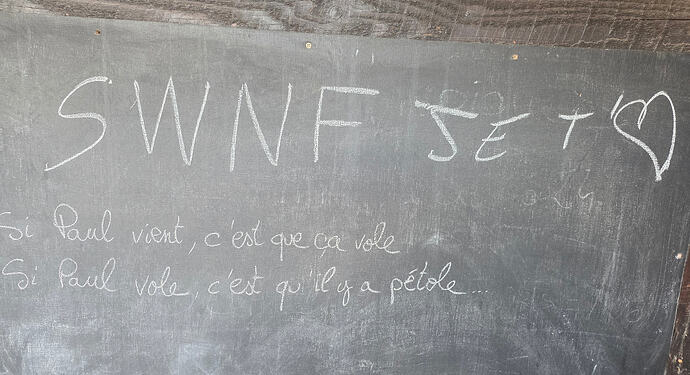 SWNF JE T'♡
Si Paul vient, c'est que ça vole
Si Paul vole, c'est qu'il y a pétole...